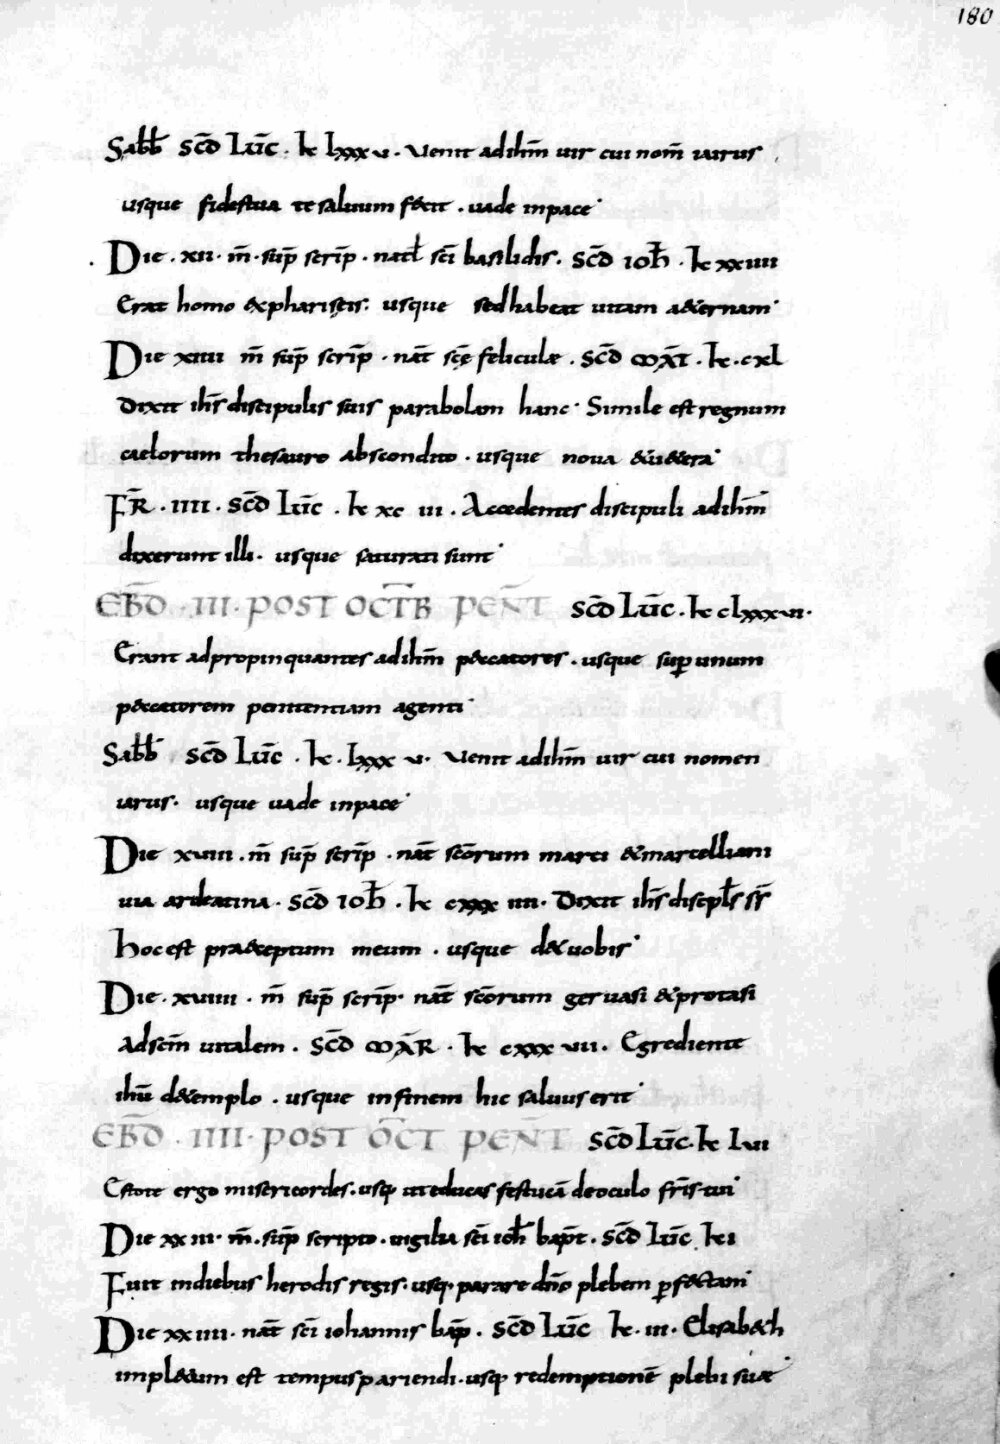 180
Sabb̄ sc̄d Luc̄ . k̄ lxxxv . Uenit adih̄m uir cui nom̄ iairus
usque fidestua te saluum fecit . uade inpace
Die . xii . m̄ . sup̄ scrip̄ . natł sc̄i basilidis . sc̄d ioh̄ . k̄ xxiiii
Erat homo expharisęis . usque sed habeat uitam a&ernam
Die xiiii m̄ sup̄ scrip̄ . nat̄ scę̄ feliculæ . sc̄d mat̄ . k̄ . cxl
Dixit ih̄s discipulis suis parabolam hanc . Simile est regnum
caelorum thesauro abscondito . usque noua &u&era
Fr̄ . iiii . sc̄d Luc̄ . k̄ xc iii . Accedentes discipuli adih̄m
dixerunt illi . usque saturati sunt
EB̄D . III . POST OCT̄B PEN̄T sc̄d Luc̄ . k̄ clxxxvi .
Erant adpropinquantes adih̄m peccatores . usque sup̱ unum
peccatorem penitentiam agenti
Sabb̄ sc̄d Luc̄ . k̄ . lxxx v . Uenit adih̄m uir cui nomen
iairus . usque uade inpace
Die xviii . m̄ sup̄ scrip̄ . nat̄ sc̄orum marci &marcelliani
uia ardeatina . sc̄d ioh̄ . k̄ cxxx iiii . Dixit ih̄s discipłs sīs
Hoc est præceptum meum . usque d& uobis
Die . xviiii . m̄ sup̄ scrip̄ . nat̄ sc̄orum geruasi &protasi
Adsc̄m uitalem . sc̄d mār . k̄ cxxx vii . Egrediente
ih̄u d&emplo . usque infinem hic saluus erit
EB̄D . IIII . POST OC̄T PEN̄T sc̄d Luc̄ . k̄ lvi
Estote ergo misericordes . usq; ut educas festucā deoculo fr̄is tui
Die xx iii . m̄ . sup̄ scripto . uigilia sc̄i ioh̄ bap̄t . sc̄d Luc̄ k̄ i
Fuit indiebus herodis regis . usq; parare dn̄o plebem p̱fectam
Die xxiiii . nat̄ sc̄i iohannis bap̄ . sc̄d Luc̄ k̄ . iii . Elisab&h
impl&um est tempus pariendi . usq; redemptionē plebi suæ